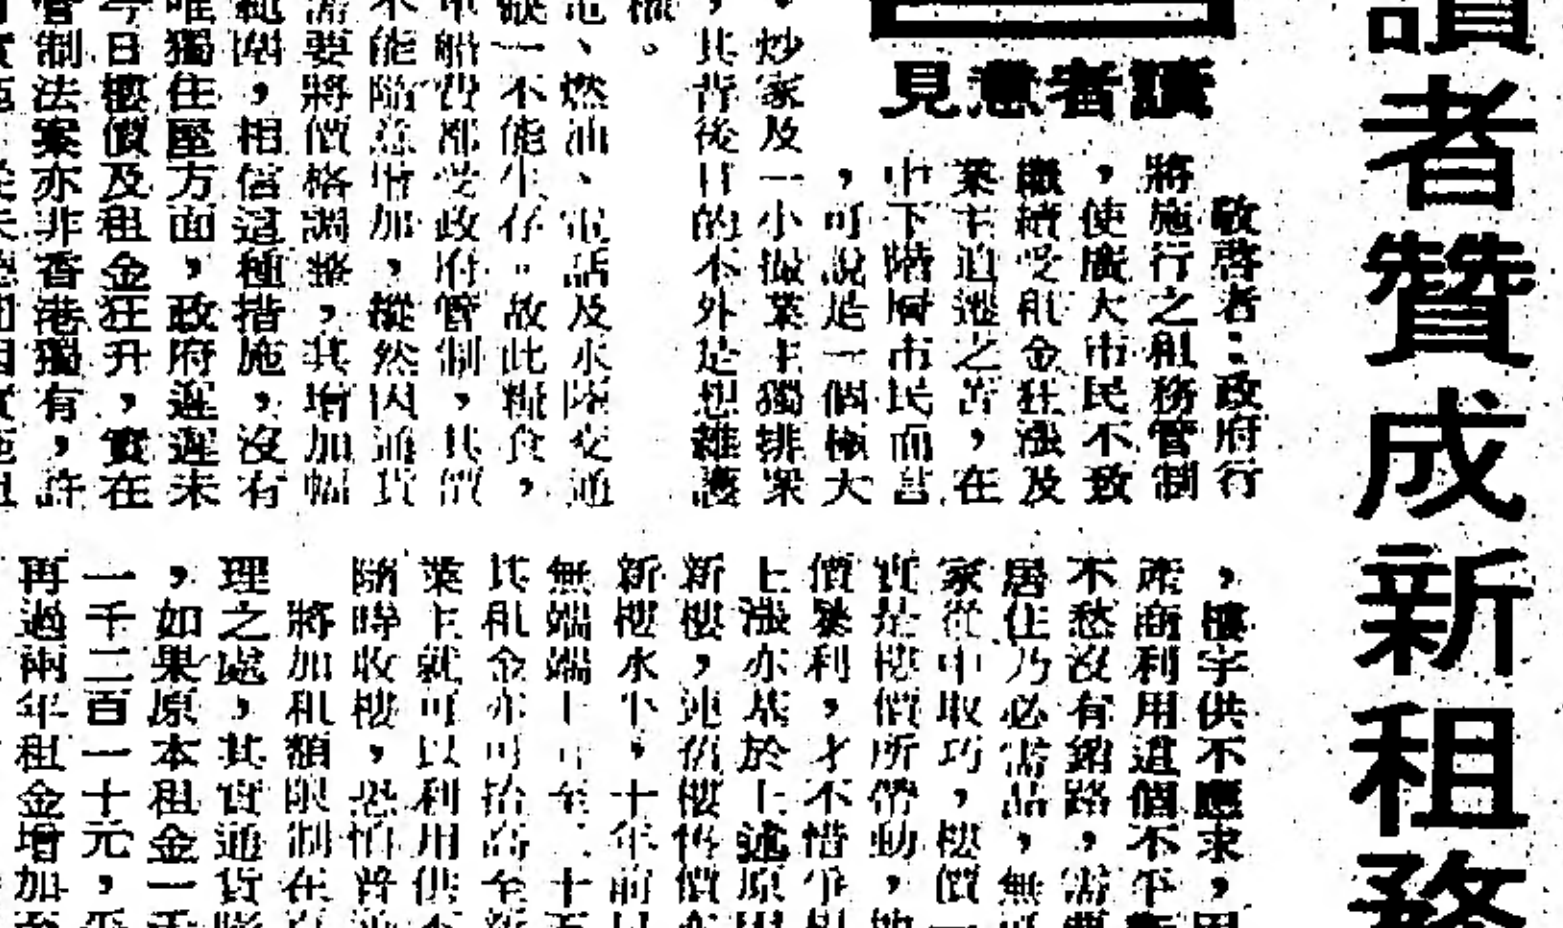 讀者贊成新租務
讀者意見
敬啓者：政府行
將施行之租務管制
，使廣大市民不致
繼續受租金狂漲及
業主迫遷之苦，在
中下階層市民而言
，可說是一個極大
炒家及一小撮業主獨排衆
，其背後目的不外是想維護
。
電、燃油、電話及水陸交通
缺一不能生存。故此糧食，
車船費都受政府管制，其價
不能隨意增加，縱然因通貨
需要將價格調整，其增加幅
範圍，相信這種措施，沒有
唯獨住屋方面，政府遲遲未
今日樓價及租金狂升，實在
管制法案亦非香港獨有，許
，樓宇供不應求，
產商利用這個不平
不愁沒有銷路，需要
居住乃必需品，無可
家從中取巧，樓價一
實是樓價所帶動，地
價暴利，才不惜爭相
上漲亦基於上述原因
新樓，連舊樓售價亦
新樓水平，十年前
無端端上升至二十五
其租金亦可抬高至新
業主就可以利用供不
隨時收樓，恐怕普
將加租額限制在
理之處，其實通貨膨
，如果原本租金一千
一千二百一十元，
再過兩年租金增加